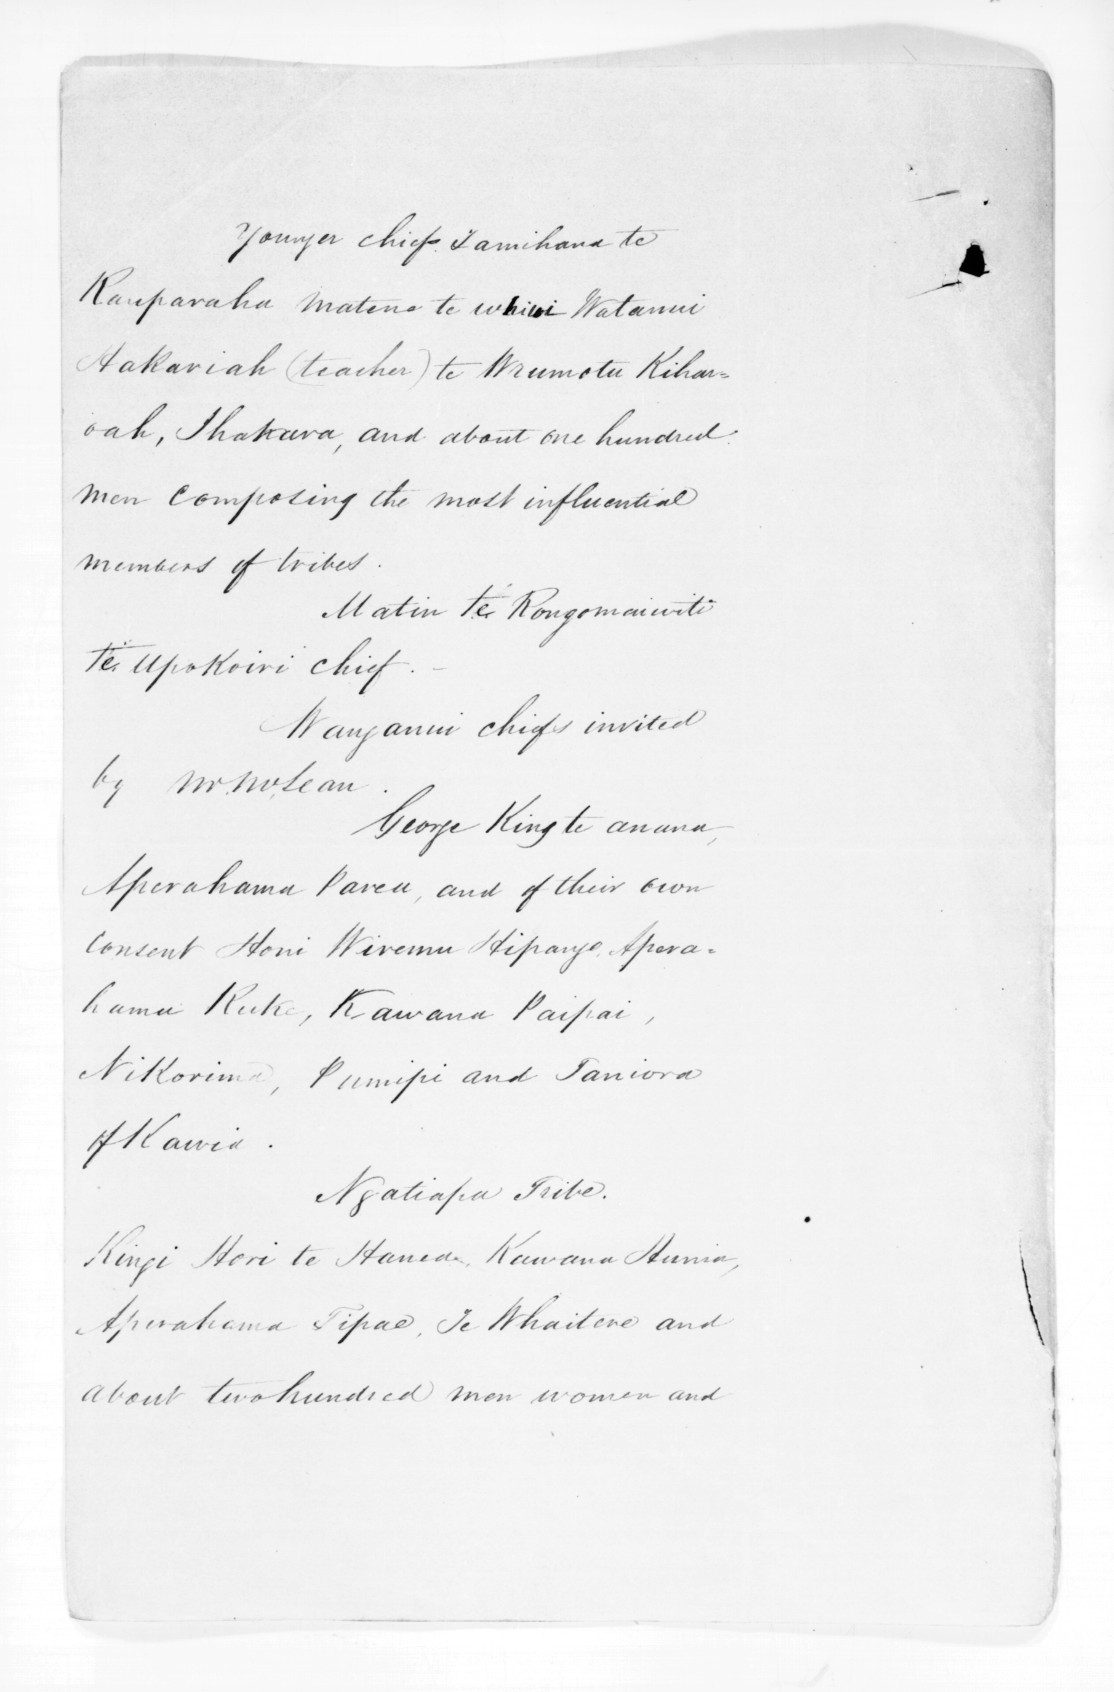 Younger chiefs. Tamihana te
Rauparaha Matene te whiwi Watanui
Hakariah (teacher) te Wrumotu Kihar=
oah, Ihakara, and about one hundred
men composing the most influential
members of tribes.
Matin te Rongomaiwiti
te Upokoiri chief. -
Wanganui chiefs invited
by Mr. McLean.
George King te anana,
Aperahama Parea, and of their own
consent Honi Wiremu Hipango, Apera=
hama Ruke, Kawana Paipai,
Nikorima, Pumipi and Taniora
of Kawia.
Ngatiapa Tribe.
Kingi Hori te Hanea, Kawana Hunia,
Aperahama Tipae, Te Whaitere and
about two hundred men women and